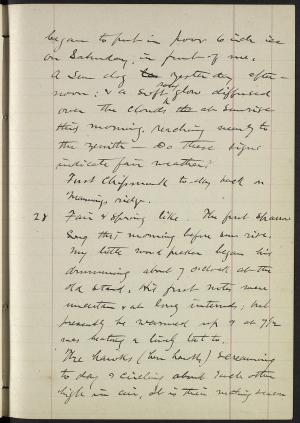 began to put in poor 6 inch ice
on Saturday, in front of me.
A Sun dog yesterday after-
noon; & a soft rosy glow diffused
over the clouds at sunrise
this morning, reaching nearly to
the zenith — Do these signs
indicate fair weather?
First Chipmunk to-day back on
ridge.
28 Fair & Spring like. The first Sparrow
Song this morning before sun rise.
My little wood pecker began his
drumming about 7 o'clock at the
old stand, His first notes were
uncertain & at long intervals; but
presently he warmed up & at 7 1/2
was beating a lively tat to.
The hawks (hen hawks) screaming
to day & circling about each other
high in air, It is their mating season